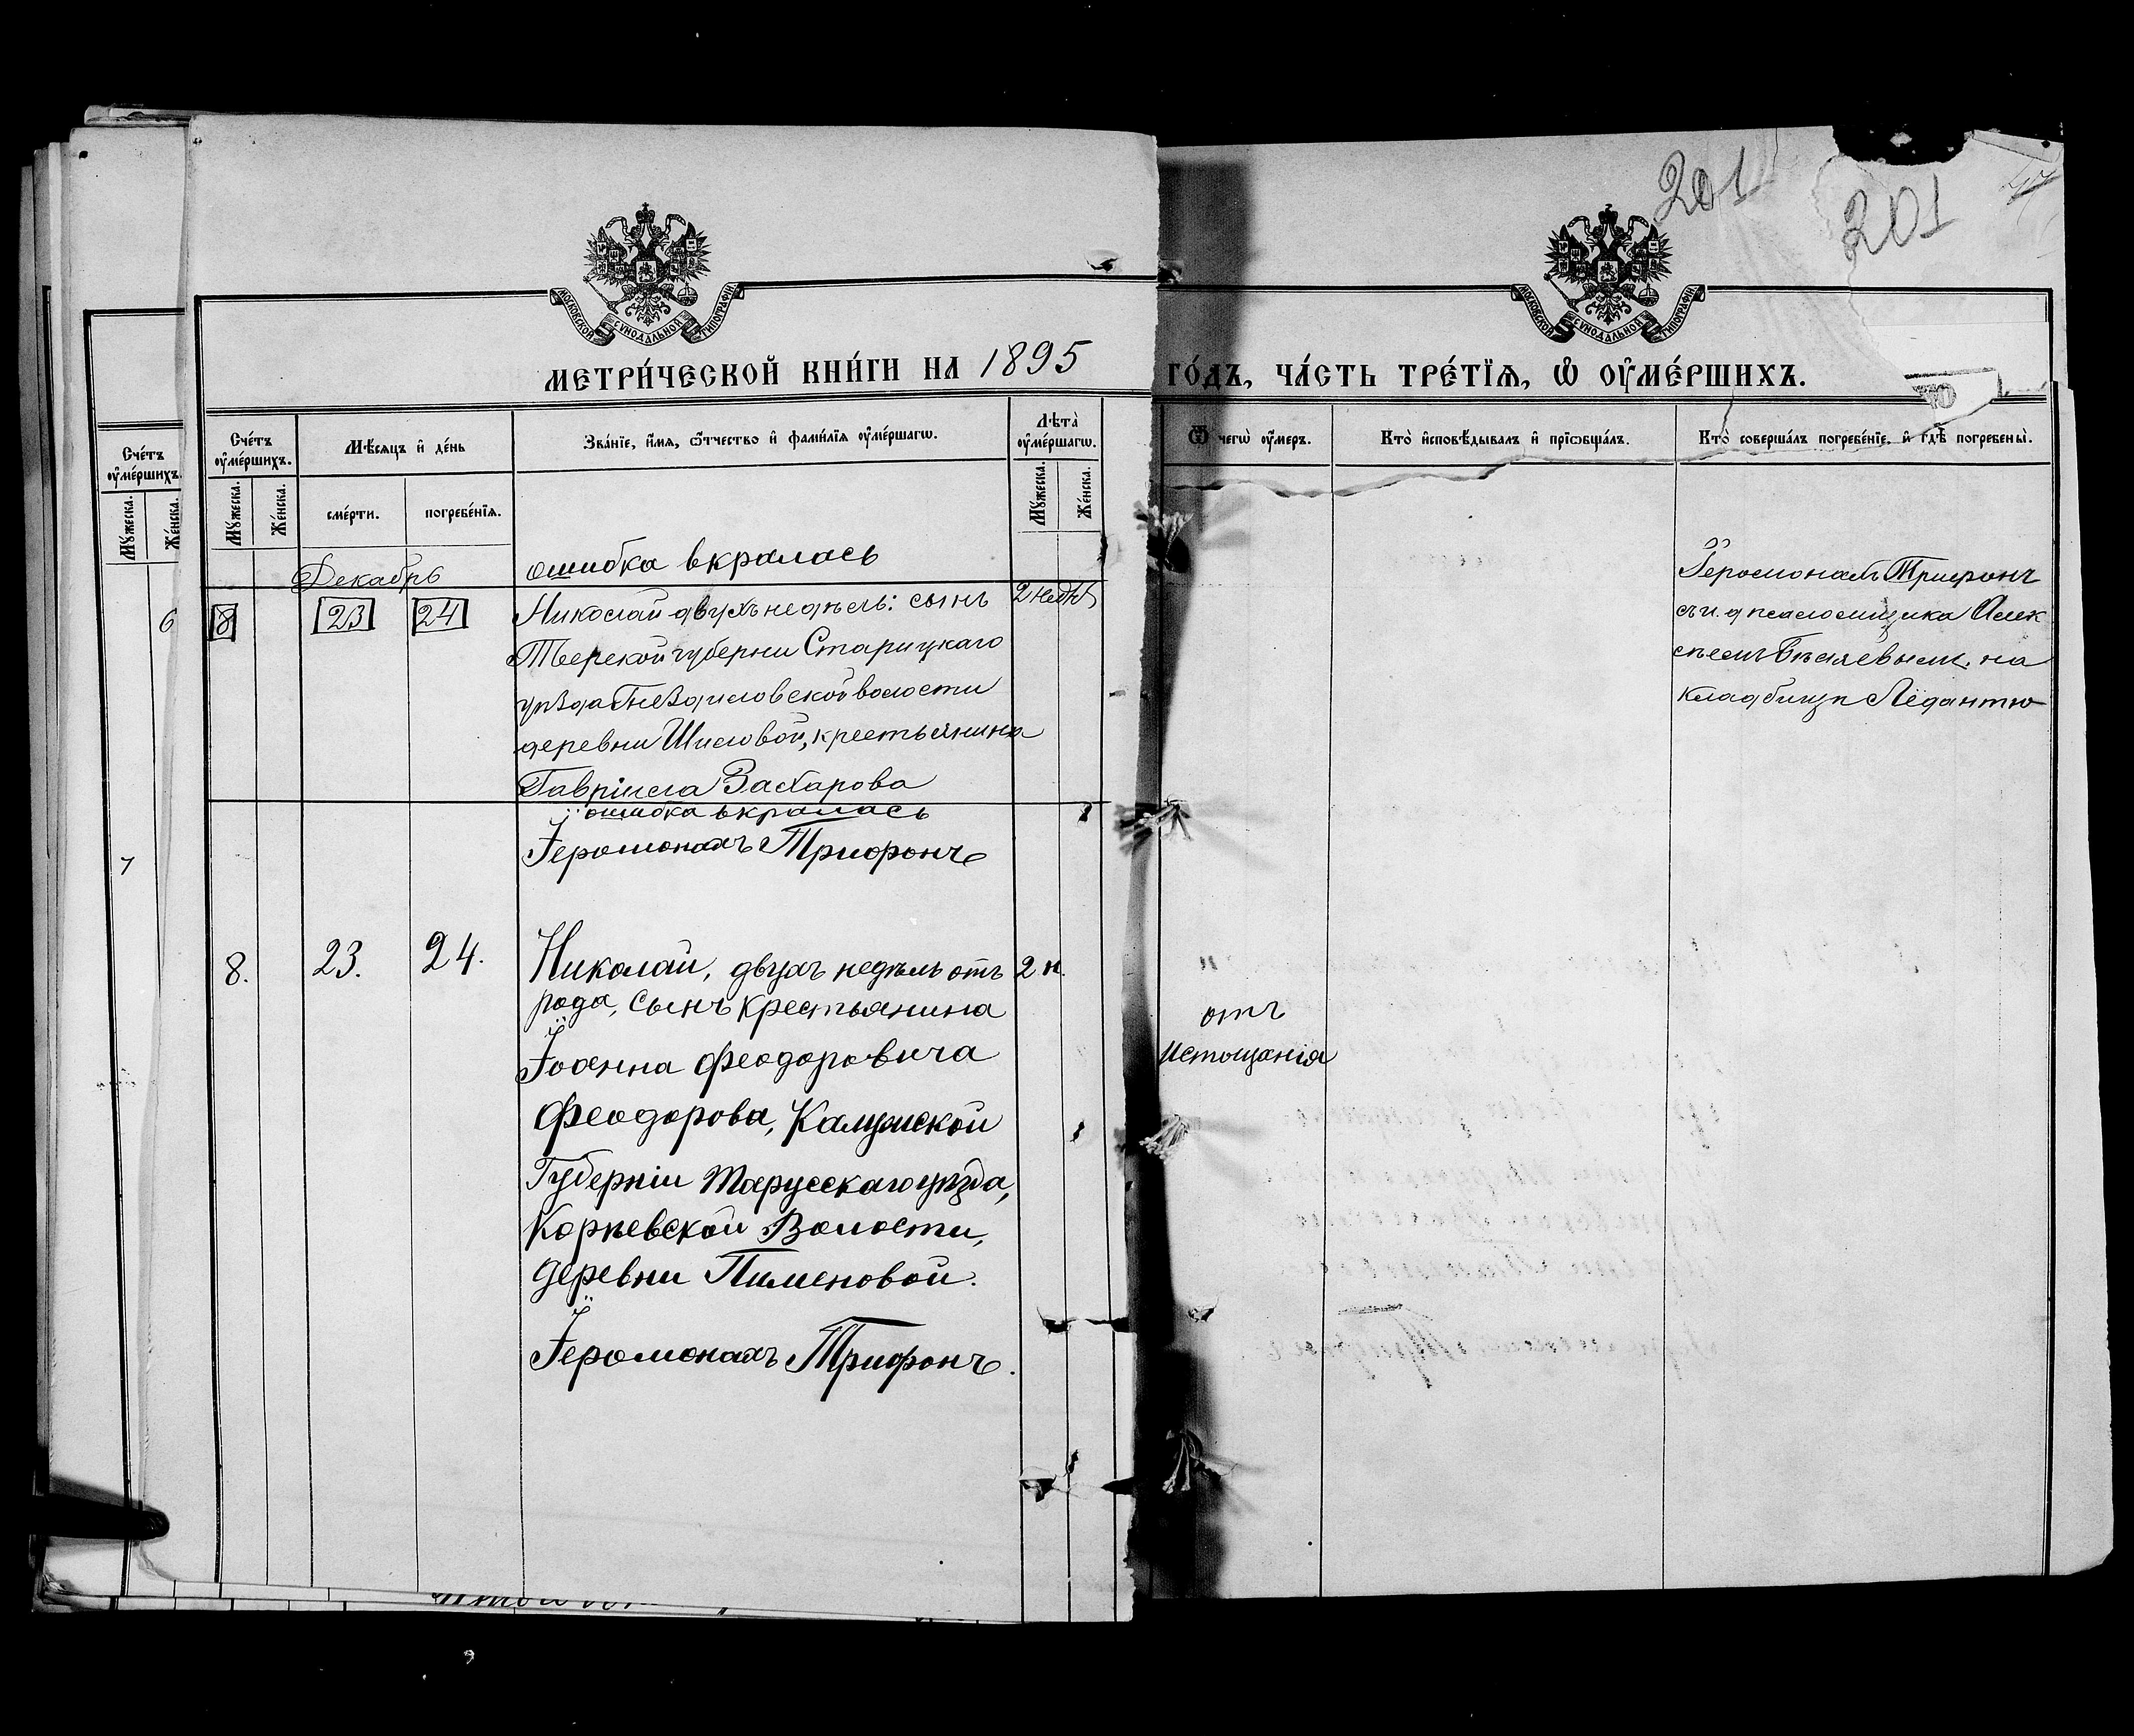 201
201
МОСКОВСКОЙ СѴНОДАЛЬНОЙ ТИПОГРАФІИ
МОСКОВСКОЙ СѴНОДАЛЬНОЙ ТИПОГРАФІИ
МЕТРИ́ЧЕСКОЙ КНИ́ГИ НА 1895
ГО́ДЪ, ЧА́СТЬ ТРЕ́ТЇѦ, Ѡ҆ ОУ҆МЕ́РШИХЪ.
Сче́тъ оу҆ме́ршихъ.
Мꙋ́жеска.
Же́нска.
6
7
Сче́тъ оу҆ме́ршихъ.
Мꙋ́жеска.
Же́нска.
Мѣ́сѧцъ и҆ де́нь
сме́рти.
погребе́нїѧ.
Зва́нїе, и҆́мѧ, ѻ҆́тчество и҆ фами́лїѧ оу҆ме́ршагѡ.
Лѣ̑та̀ оу҆ме́ршагѡ.
Мꙋ́жеска.
Же́нска.
Ѿ чегѡ̀ оу҆́меръ.
Кто̀ и҆сповѣ́дывалъ и҆ прїѡбща́лъ.
Кто̀ соверша́лъ погребе́нїе, и҆ гдѣ̀ погребены̀.
Декабрь
ошибка вкралась
8
23
24
Николай двухъ недѣль: сынъ
2 нед.
Тверской губерни Старицкаго
уѣзда Гнездиловской волости
деревни Шиловой, крестьянина
Гавріила Захарова
Іеромонахъ Трифонъ
съ и. д псаломщика Алек
сѣемъ Бѣляевым. на
кладбищѣ
ошибка вкралась
Іеромонахъ Трифонъ
8.
23.
24.
Николай, двухъ недѣль отъ
2 н.
рода, сынъ крестьянина
Іоанна Феодоровича
Феодорова, Калужской
Губерніи Тарусскаго уѣзда,
Корѣевской Волости,
деревни Пименовой.
Іеромонахъ Трифонъ.
отъ
истощанія